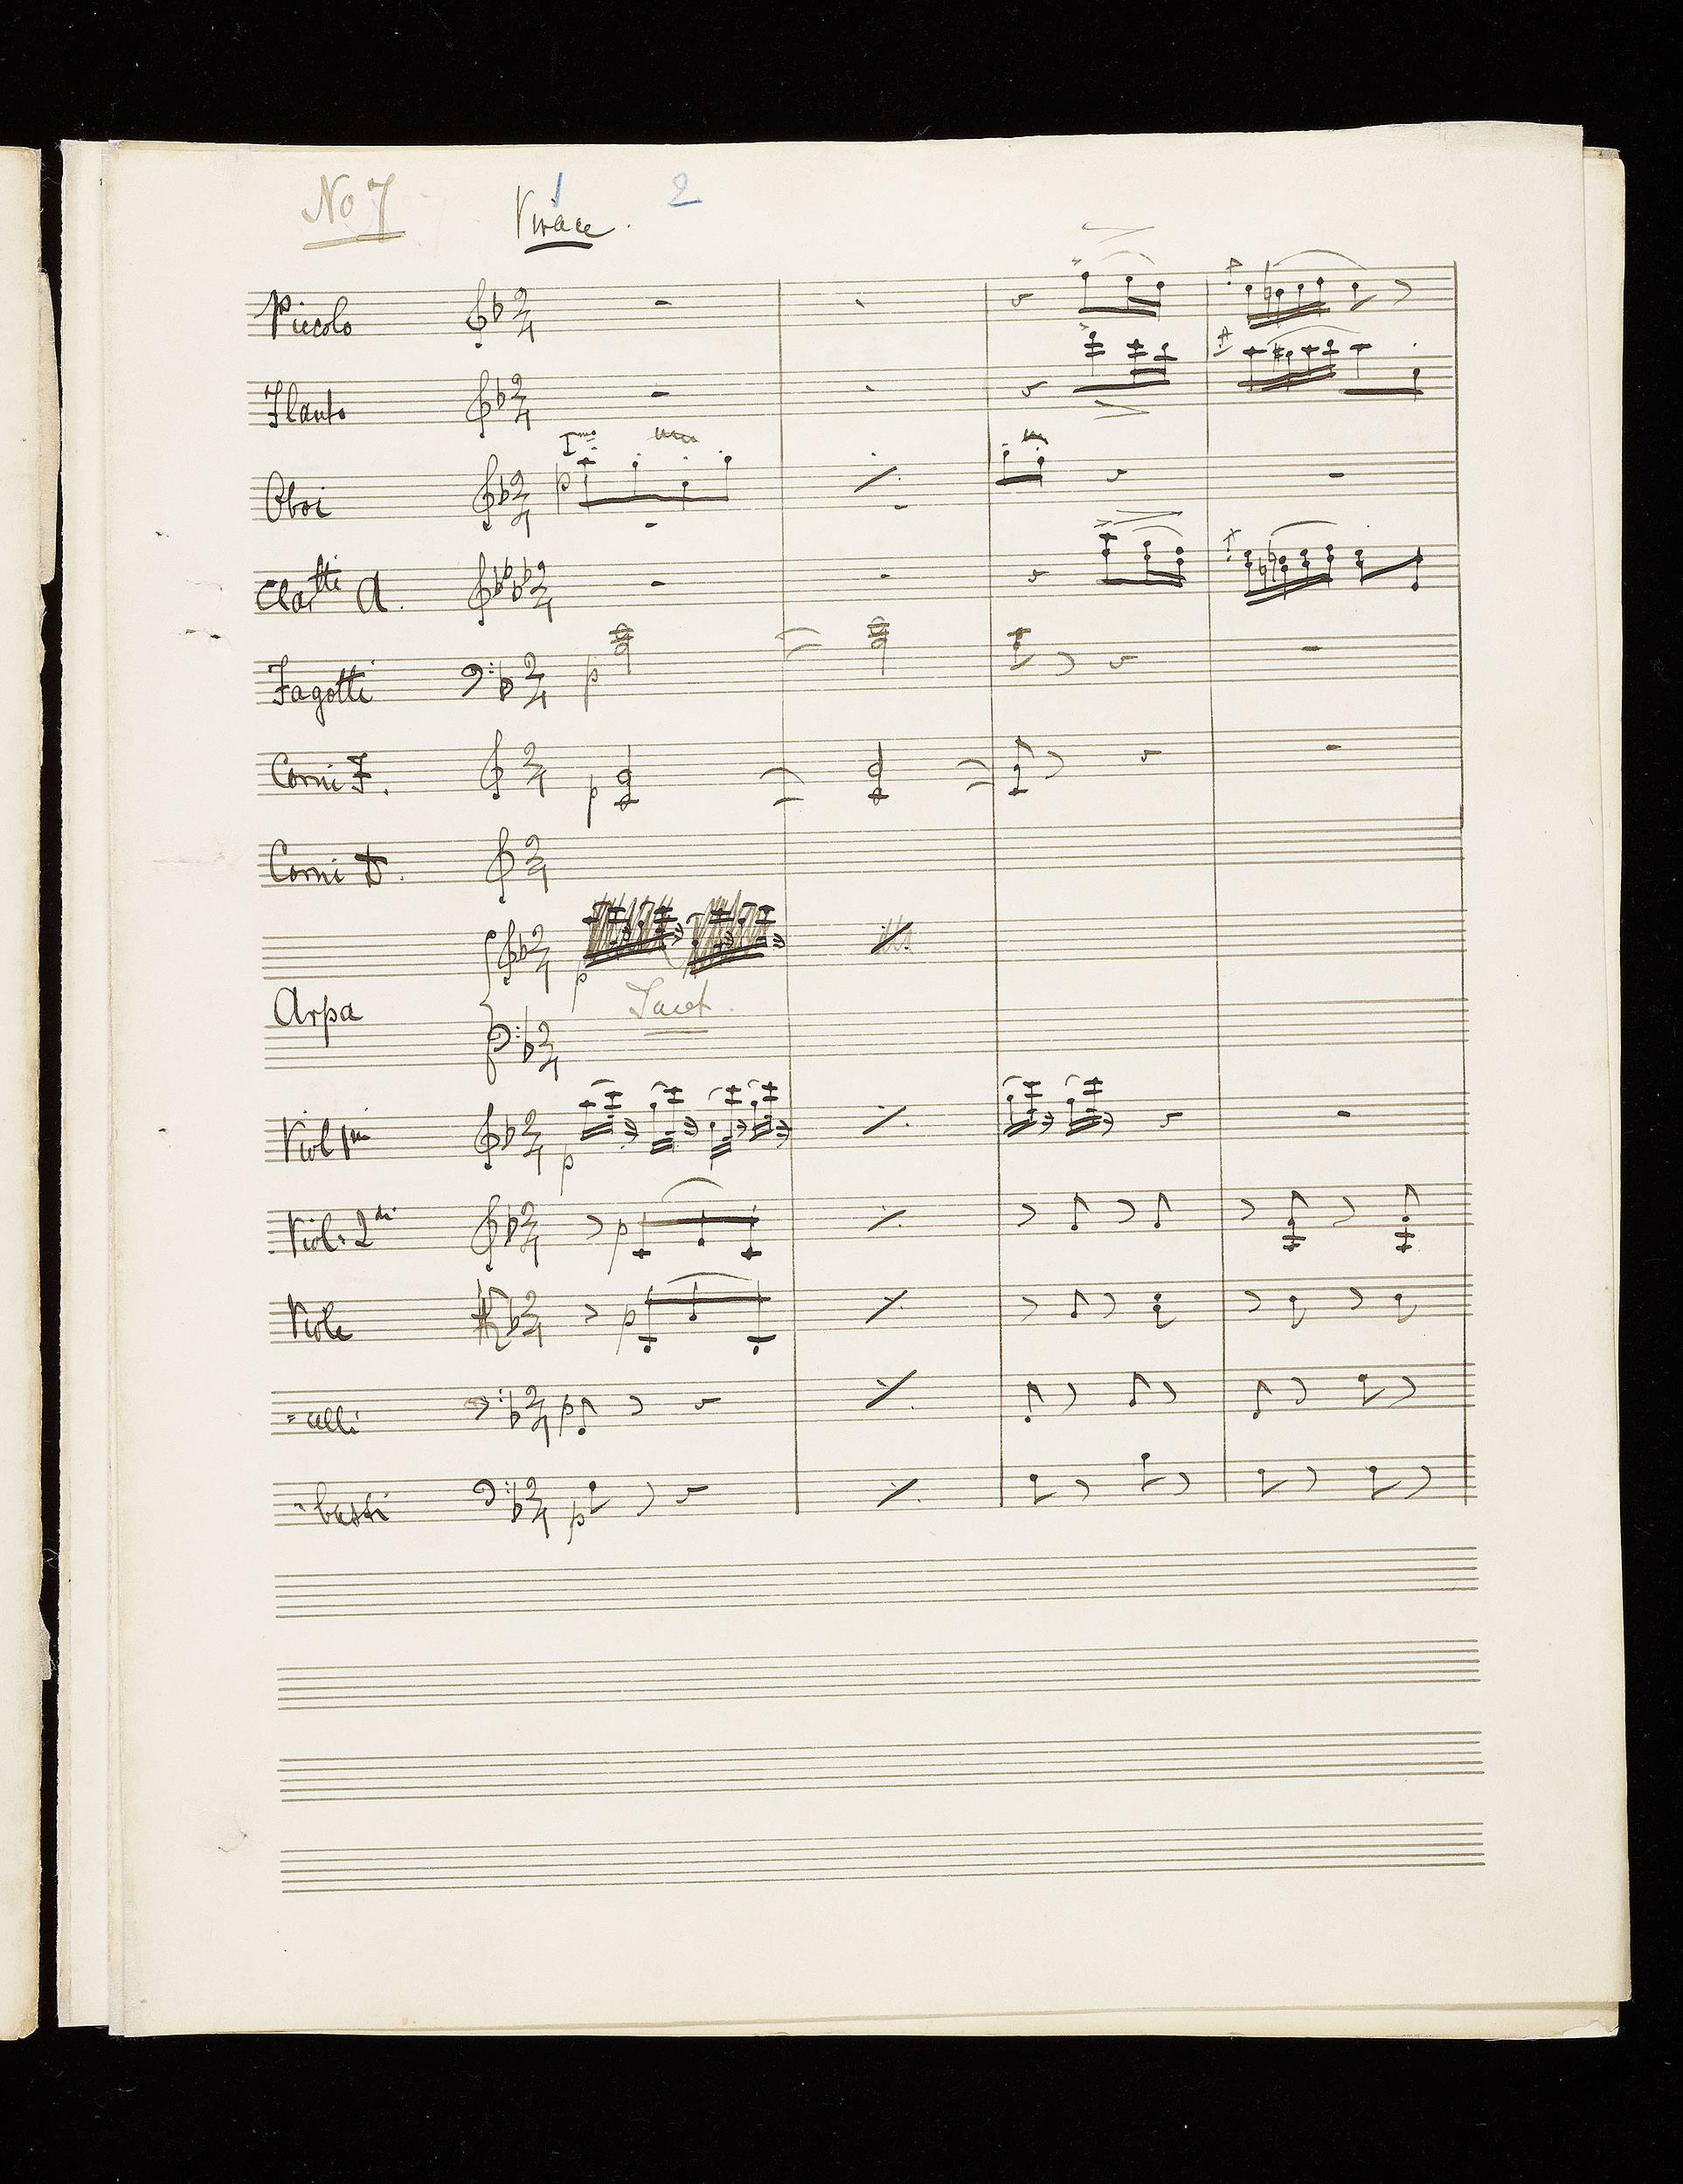 No 7 Vivace. 1 2
Piccolo
Flauto
Imo
Oboi p
Clartti A.
Fagotti p
Corni F. p
Corni D.
p
Tacet.
Arpa
Viol Imi p
Viol. 2di p
Viole p
=celli p
-bassi p